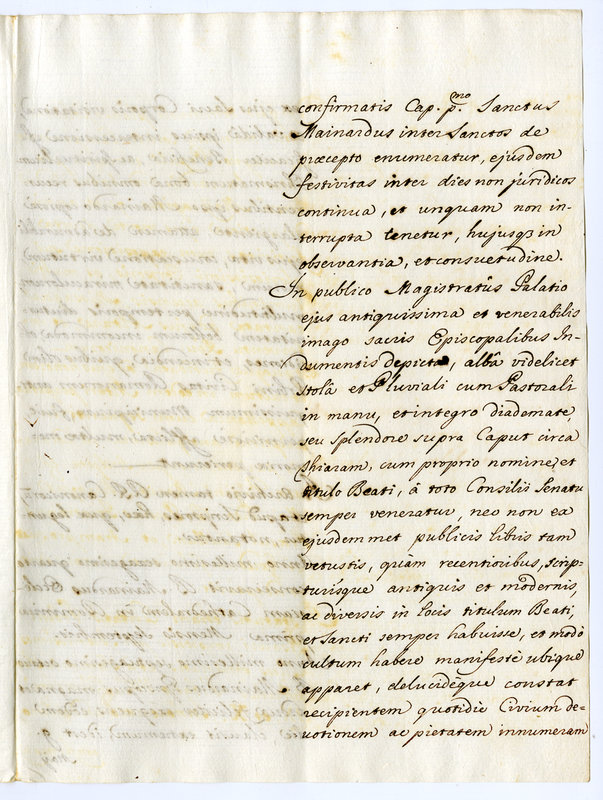 confirmatis Cap. pmo. Sanctus
Mainardus inter Sanctos de
præcepto enumeratur, ejusdem
festivitas inter dies non juridicos
continua, et unquam non in-
terrupta tenetur, hujusq3 in
observantia, et consuetudine.
In publico Magistratûs Palatio
ejus antiquissima et venerabilis
imago sacris Episcopalibus In-
dumentis depicta, albâ videlicet
stolâ et Pluviali cum Pastorali
in manu, et integro diademate,
seu splendore supra Caput circa
thiaram, cum proprio nomine, et
titulo Beati, â toto Consilii Senatu
semper veneratur, nec non ex
ejusdem met publicis libris tam
vetustis, quàm recentioribus, scrip-
turisque antiquis et modernis,
ac diversis in locis titulum Beati,
et Sancti semper habuisse, et modò
cultum habere manifestè ubique
apparet, delucideque constat
recipientem quotidie Civium de-
votionem ac pietatem innumeram